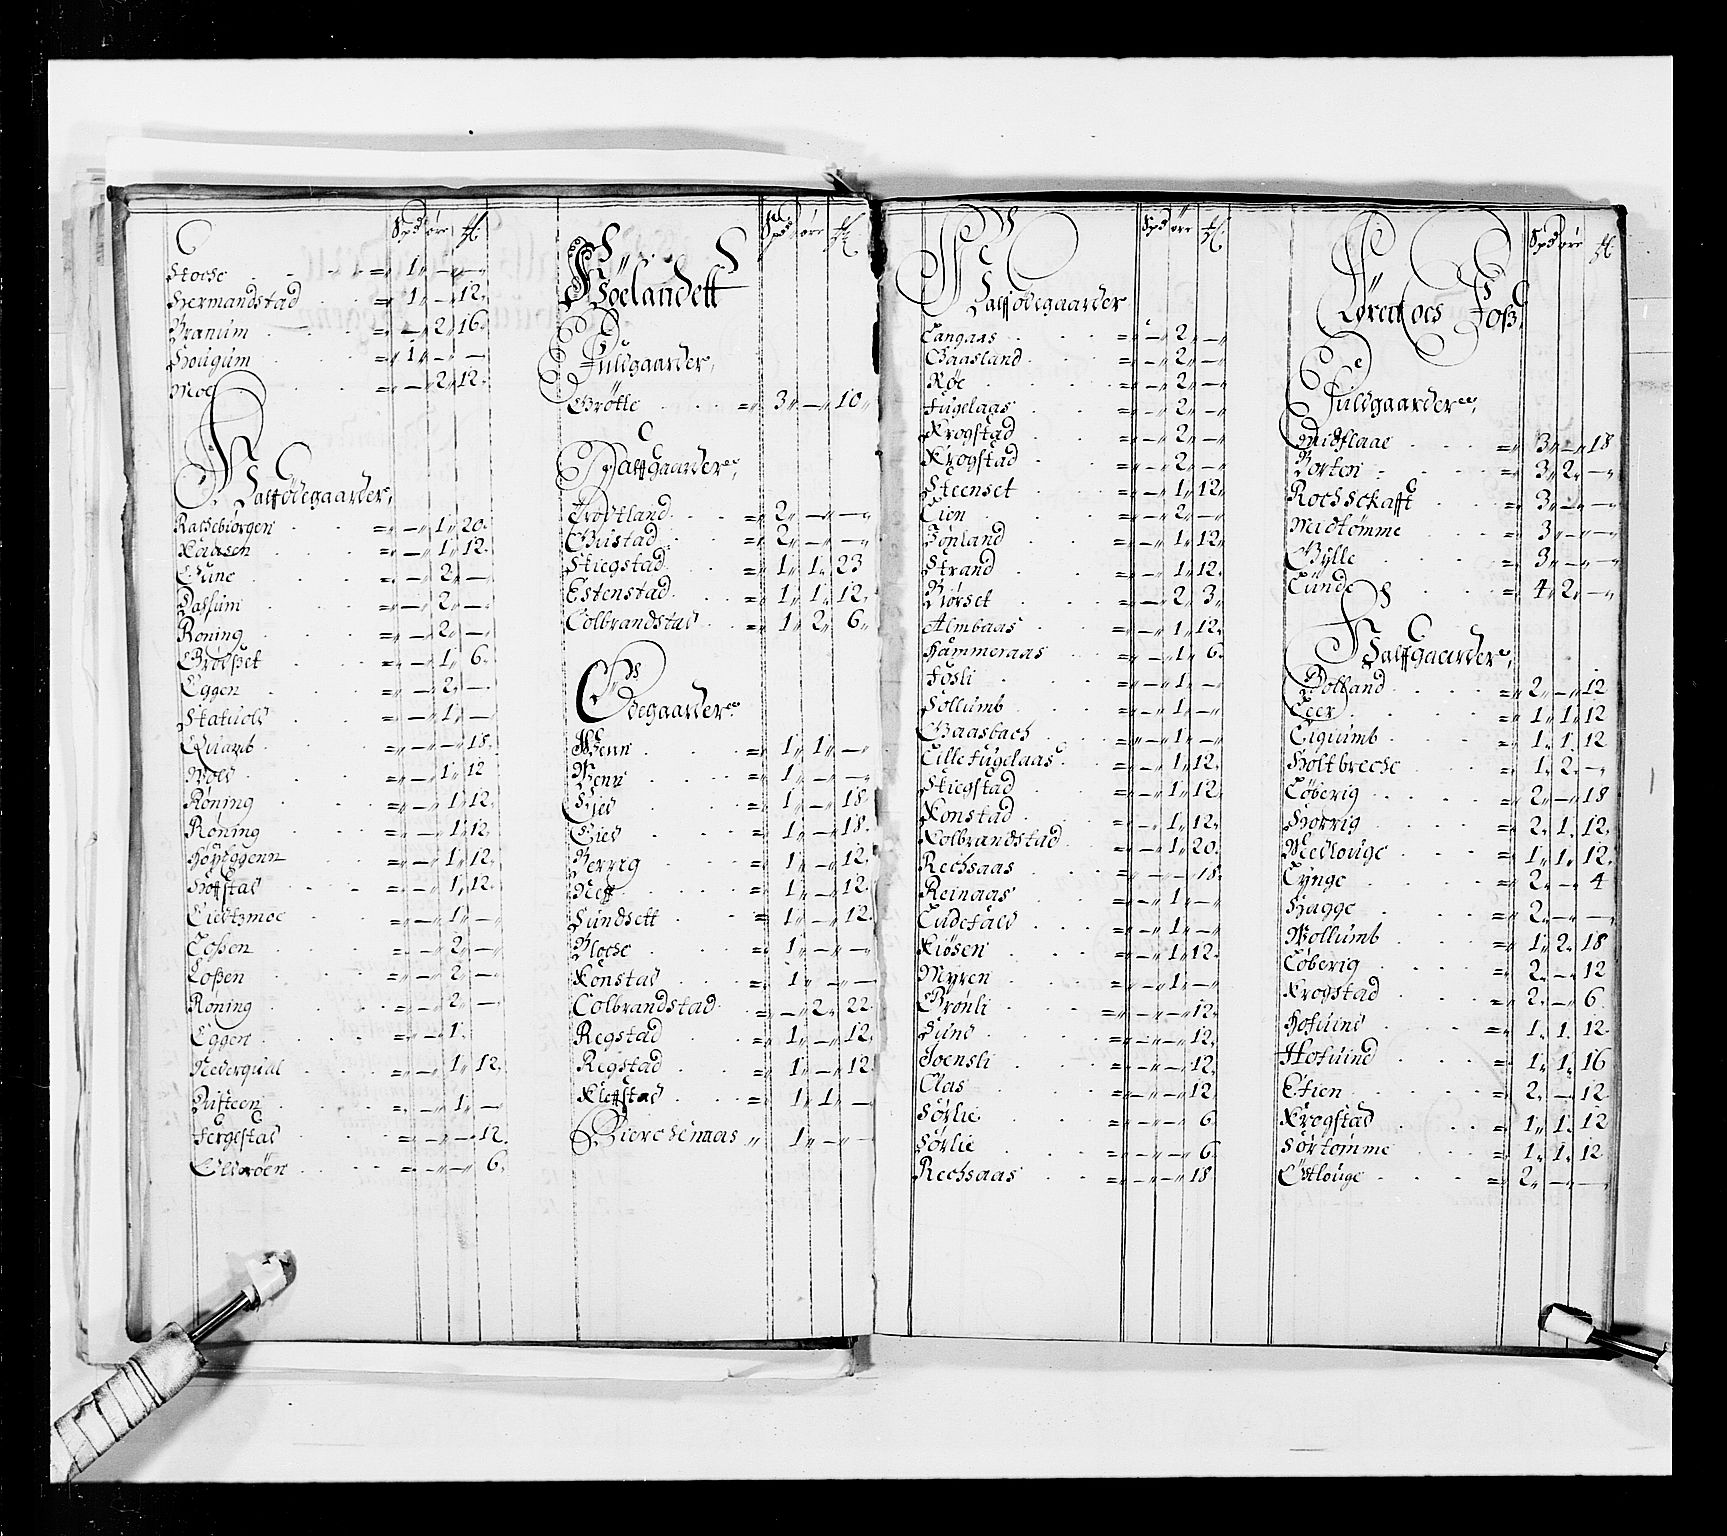 Spd öre ₰
Stocse = 1 — —
Hermandstad = 1 — 12
Branum = — 2 16
Hougum = 1 — —
Moe = — 2 12
Halfødegaarder,
Ratsebiorgen = — 1 20
Kaasen = — 1 12
Gune = — 2 —
Dassum = — 2 —
Roning = — 2 —
Grødset = — 1 6
Eggen = — 2 —
Skatuold = — 1 —
Quamb = — — 18
Wold = — 1 12
Røning = — 1 12
Røning = — 1 12
Høyeggenn = — 1 12
Hoffstad = — 1 12
Lieltzmoe = — 1 —
Loßen = — 2 —
Loßen = — 2 —
Røning = — 2 —
Eggen = — 1
Nederqual = — 1 12
Dusteen = — 1 —
Fergestad = — — 12
Ulvrøen = — — 6
Spd öre ₰
Høelandett
Fuldgaarder,
Grøtte = 3 — 10
Halfgaarder,
Brodtland = 2 — —
Gustad = 2 — —
Skiegstad = 1 1 23
Estenstad = 1 1 12
Colbrandstad = 1 2 6
Ødegaarder
Wenn = 1 1 —
Wenn = 1 — —
Gied = 1 — 18
Gied = 1 — 18
Berrig = 1 — 12
Neff = 1 — 12
Sundsett = 1 — 12
Blocse = 1 — —
Konstad = 1 — —
Colbrandstad = — 2 22
Regstad = 1 — 12
Regstad = 1 — 12
Kleffstad = 1 1 —
Bierchenaas 1 — —
Spd öre ₰
Halfødegaarder
Langaas = — 2 —
Gaasland = — 2 —
Røe = — 2 —
Fugelaas = — 2 —
Krogstad = — 2 —
Krogstad = — 2 —
Steenset = — 1 12
Lien = — 2 —
Jønland = — 1 12
Strand = — 1 12
Biørset = — 2 3
Almbaas = — 1 12
Hammeraas = — 1 6
Fosli = — 1 —
Sollumb = — 1 —
Gaasbach = — 1 —
Lille Fugelaas = — 1 12
Skiegstad = — 1 12
Konstad = — 1 12
Kolbrandstad = — 1 20
Rechsaas = — — 18
Reinaas = — 1 —
Ludefald = — 1 —
Kiøsen = — 1 12
Myren = — 1 —
Grønli = — — 12
Sund = — — 12
Joensli = — — 12
Aas = — — 12
Sørlie = — — 6
Sørlie = — — 6
Rechsaas = — — 18
Spd öre ₰
Fuldgaarder,
Midflaae = 3 — 18
Borten = 3 2 —
Rochsckafft = 3 — —
Midtømme = 3 — —
Gylle = 3 — —
Lunde = 4 2 —
Halfgaarder,
Dolland = 2 — 12
Leer = 1 1 12
Ligiumb = 1 1 12
Høltbreche = 1 2 —
Løberig = 2 — 18
Horrig = 2 1 12
Medlouge = 1 1 12
Lynge = 2 — 4
Hagge = 2 — —
Wollumb = 1 2 18
Løberig = 2 — 12
Krogstad = 2 — 6
Hofuind = 1 1 12
Hofuind = 1 1 16
Eien = 2 — 12
Krogstad = 1 1 12
Sørtømme = 1 1 12
Østlouge = 2 — —